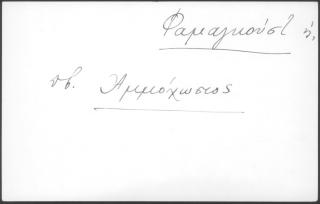 Φαμαγκούστα, ἡ.
πβ. Ἀμμόχωστος